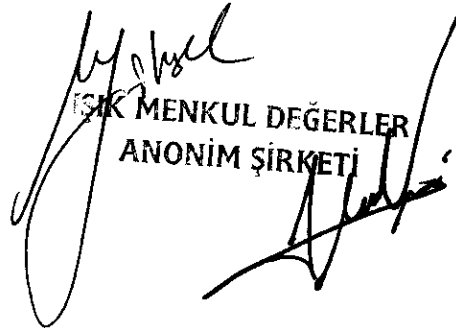 IŞIK MENKUL DEĞERLER
ANONİM ŞİRKETİ